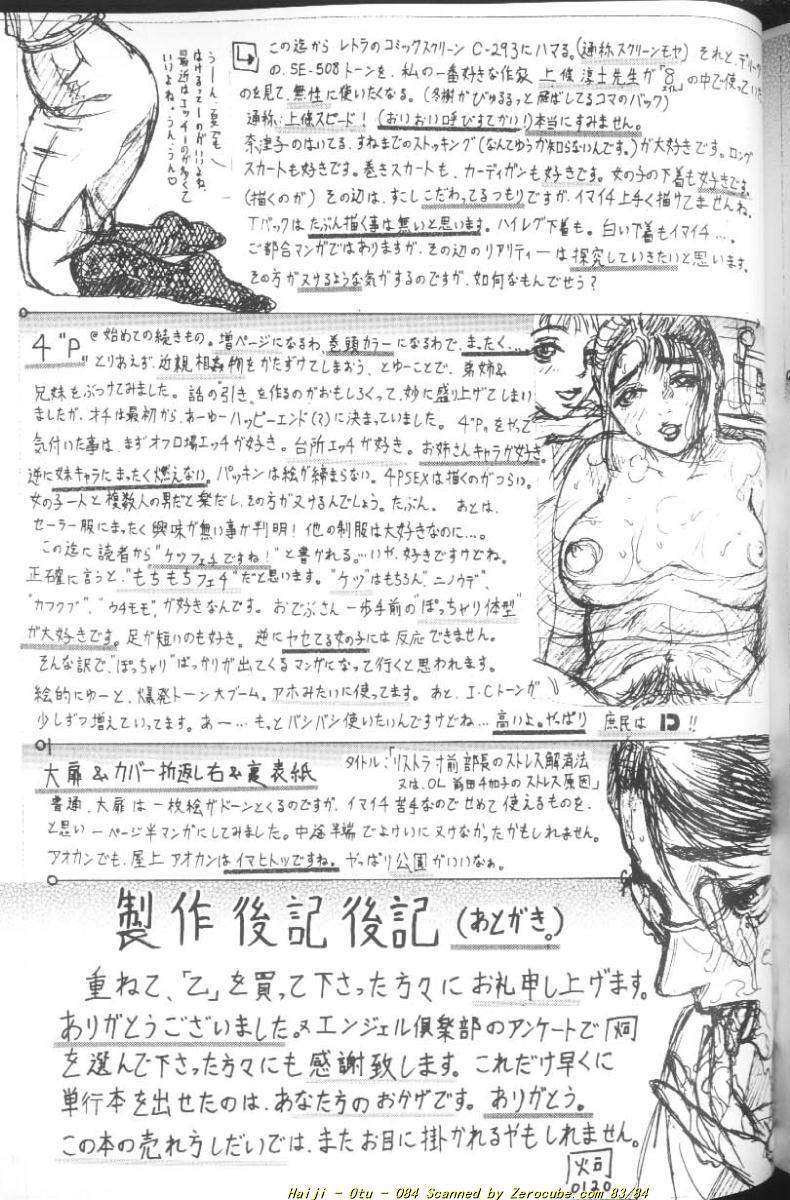 この迄から レトラのコミックスクリーン C-293にハマる。(通称スクリーンモヤ) それと、デリータ
の、SE-508トーンを、私の一番好きな作家 上條淳士先生が「8」の中で使っていた
のを見て、無性に使いたくなる。(冬樹がびゅるるっと飛ばしてるコマのバック)
通称:上條スピード! (おいおい呼びすてかい!)本当にすみません。
奈津子のはいてる、すねまでのストッキング(なんてゆうか知らないんです。)が大好きです。ロング
スカートも好きです。巻きスカートも、カーディガンも好きです。女の子の下着も好きです。
(描くのが) その辺は、すこしこだわってるつもりですが、イマイチ上手く描けてませんね。
Tバックはたぶん描く事は無いと思います。ハイレグ下着も。白い下着もイマイチ…。
ご都合マンガではありますが、その辺のリアリティーは探究していきたいと思います。
その方がヌけるような気がするのですが、如何なもんでせう?
うーん、夏でも
はけるってーのがいいよね、
最近はエッチーのが多くて
いいよね。うん、うん♡
4"P"
@始めての続きもの。増ページになるわ、巻頭カラーになるわで、まったく…
とりあえず、近親相姦物をかたずけてしまおう、とゆーことで、弟姉&
兄妹をぶつけてみました。話の"引き"を作るのがおもしろくって、妙に盛り上げてしまい
ましたが、オチは最初から、あーゆーハッピーエンド(?)に決まっていました。4"P"をやって
気付いた事は、まずオフロ場エッチが好き。台所エッチが好き。お姉さんキャラが好き。
逆に妹キャラにまったく燃えない。パッキンは絵が締まらない。4PSEXは描くのがつらい。
女の子一人と複数人の男だと楽だし、その方がヌけるんでしょう。たぶん。 あとは、
セーラー服にまったく興味が無い事が判明!他の制服は大好きなのに…。
この迄に読者から"ケツフェチですね!"と書かれる。…いや、好きですけどね。
正確に言うと、"もちもちフェチ"だと思います。"ケツ"はもちろん、"ニノウデ"、
"カフクブ"、"ウチモモ"、が好きなんです。おでぶさん一歩手前の"ぽっちゃり体型"
が大好きです。足が短いのも好き。逆にヤセてる女の子には反応できません。
そんな訳で、"ぽっちゃり"ばっかりが出てくるマンガになって行くと思われます。
絵的にゆーと、爆発トーン大ブーム。アホみたいに使ってます。あと、I・Cトーンが
少しずつ増えていってます。あー…もっとバシバシ使いたいんですけどね…高いよ。やっぱり 庶民は !!
01
大扉&カバー折返し右&裏表紙
タイトル:「リストラ寸前部長のストレス解消法
又は、OL 前田千加子のストレス原因」
普通、大扉は一枚絵がドーンとくるのですが、イマイチ苦手なのでせめて使えるものを、
と思い 一ページ半マンガにしてみました。中途半端でよけいにヌけなかったかもしれません。
アオカンでも、屋上アオカンはイマヒトツですね。やっぱり公園がいいなぁ。
製作後記後記(あとがき。)
重ねて、「乙」を買って下さった方々にお礼申し上げます。
ありがとうございました。ヌエンジェル倶楽部のアンケートで
を選んで下さった方々にも感謝致します。これだけ早くに
単行本を出せたのは、あなた方のおかげです。ありがとう。
この本の売れ方しだいでは、またお目に掛かれるやもしれません。
0120
Haiji - Otu - 084 Scanned by Zerocube.com 83/84